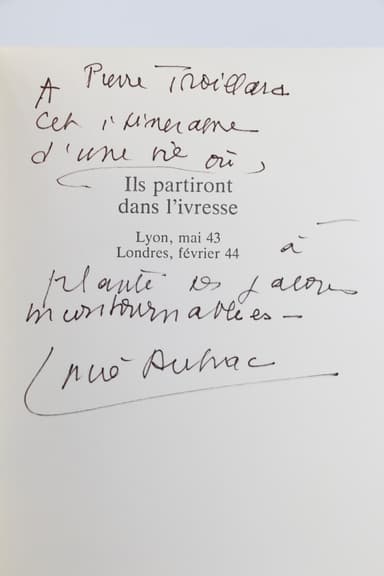 A Pierre Troillard
Cet itinéraire
d'une vie où,
Ils partiront
dans l'ivresse
Lyon, mai 43
Londres, février 44
à
planté ses jalons
incontournables –
Lucie Aubrac